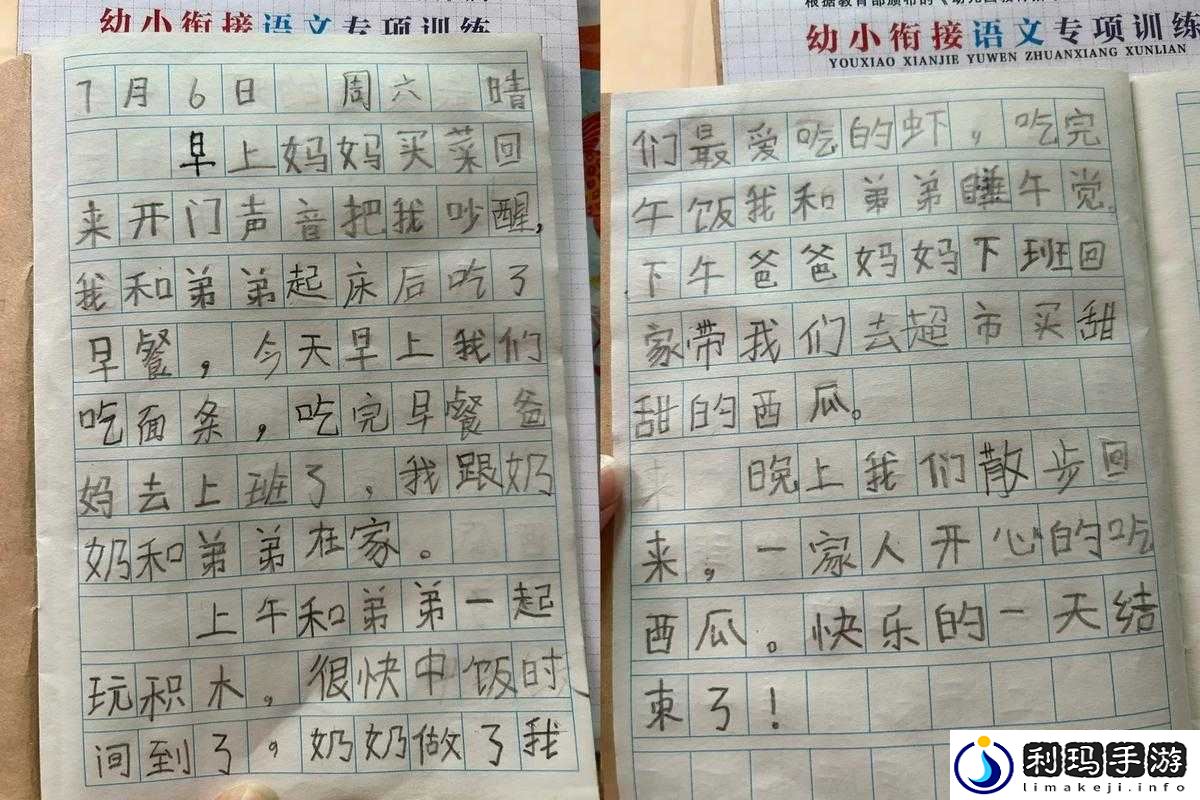 幼小衔接语文专项训练
7月6日 周六 晴
早上妈妈买菜回
来开门声音把我吵醒,
我和弟弟起床后吃了
早餐，今天早上我们
吃面条，吃完早餐爸
妈去上班了，我跟奶
奶和弟弟在家。
上午和弟弟一起
玩积木，很快中饭时
间到了。奶奶做了我
根据教育部颁布的《幼儿园教育
幼小衔接语文专项训练
YOUXIAO XIANJIE YUWEN ZHUANXIANG XUNLIAN
们最爱吃的虾，吃完
午饭我和弟弟睡午觉.
下午爸爸妈妈下班回
家带我们去超市买甜
甜的西瓜。
晚上我们散步回
来，一家人开心的吃
西瓜。快乐的一天结
束了！
利玛手游
limakeji.info